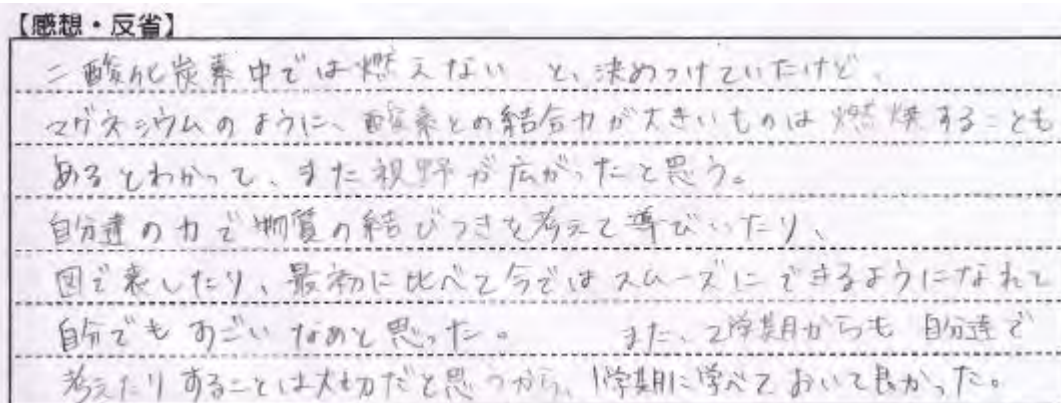 【感想・反省】
二酸化炭素中では燃えない と、決めつけていたけど、
マグネシウムのように、酸素との結合力が大きいものは燃焼することも
あるとわかって、また視野が広がったと思う。
自分達の力で物質の結びつきを考えて導びいたり、
図で表したり、最初に比べて今ではスムーズにできるようになれて
自分でもすごいなあと思った。 また、2学期からも自分達で
考えたりすることは大切だと思うから、1学期に学べておいて良かった。